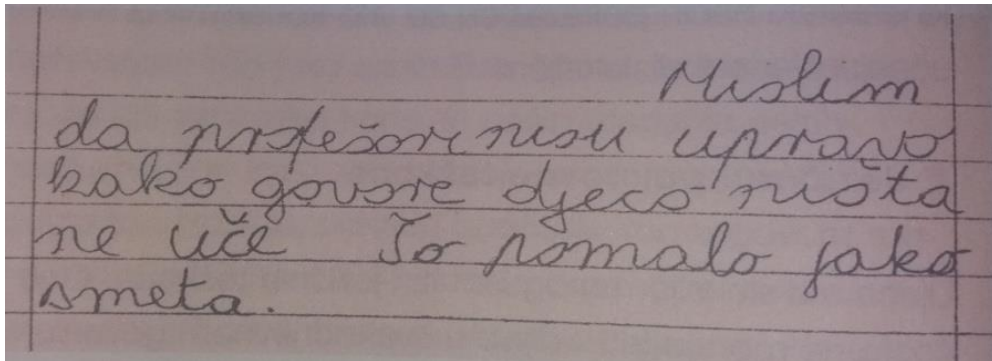 Mislim
da profešori nisu upravo
kako govore djeca ništa
ne uče To pomalo jako
smeta.